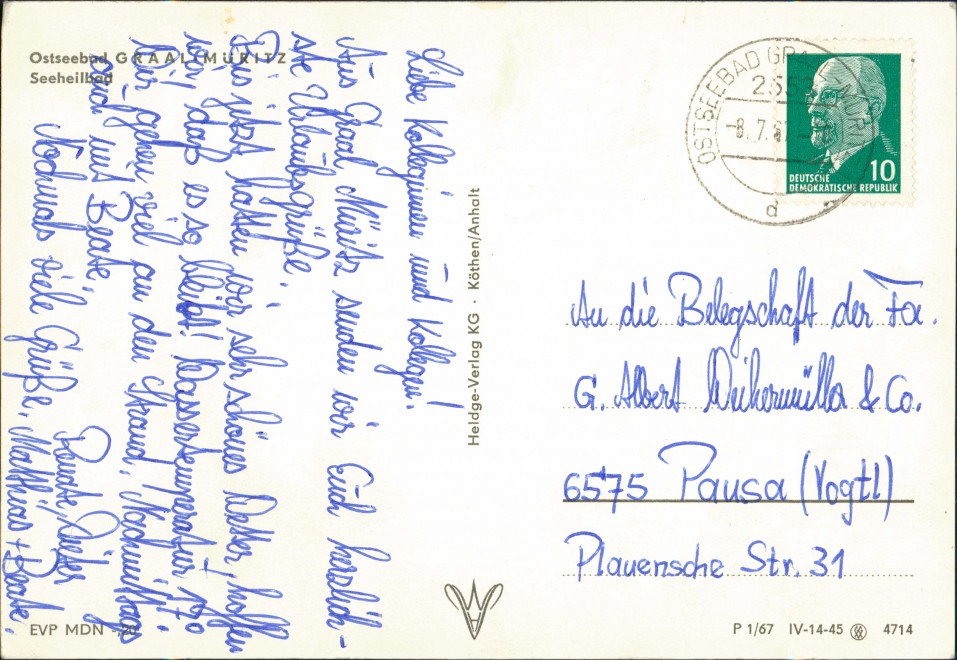 Ostseebad GRAAL-MÜRITZ
Seeheilbad
Liebe Kolleginnen und Kollegen!
Aus Graal Müritz senden wir Euch herzlich-
ste Urlaubsgrüße.
Bis jetzt hatten wir sehr schönes Wetter, hoffen
wir, daß es so bleibt! Wassertemperatur 17°
Wir gehen viel an den Strand, Nachmittags
auch mit Beate.
Nochmals viele Grüße.
Renate, Dieter
Matthias + Beate.
Heldge-Verlag KG · Köthen/Anhalt
OSTSEEBAD GRAAL-MÜRITZ
2553
-8. 7. 67
d
10
DEUTSCHE
DEMOKRATISCHE REPUBLIK
An die Belegschaft der Fa.
G. Albert Weihermüller & Co.
6575 Pausa (Vogtl)
Plauensche Str. 31
EVP MDN -,20
P 1/67 IV-14-45 4714